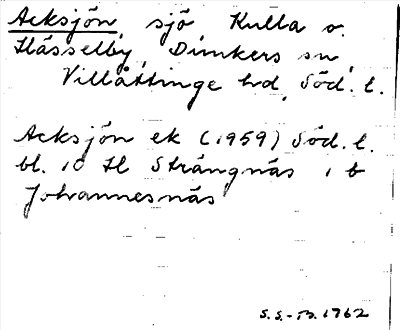 Acksjön, sjö Kulla o.
Hässelby, Dunkers sn,
Villåttinge hd, Söd. l.
Acksjön ek (1959) Söd. l.
bl. 10 Hl Strängnäs 1 b
Johannesnäs
S.S.-B. 1962